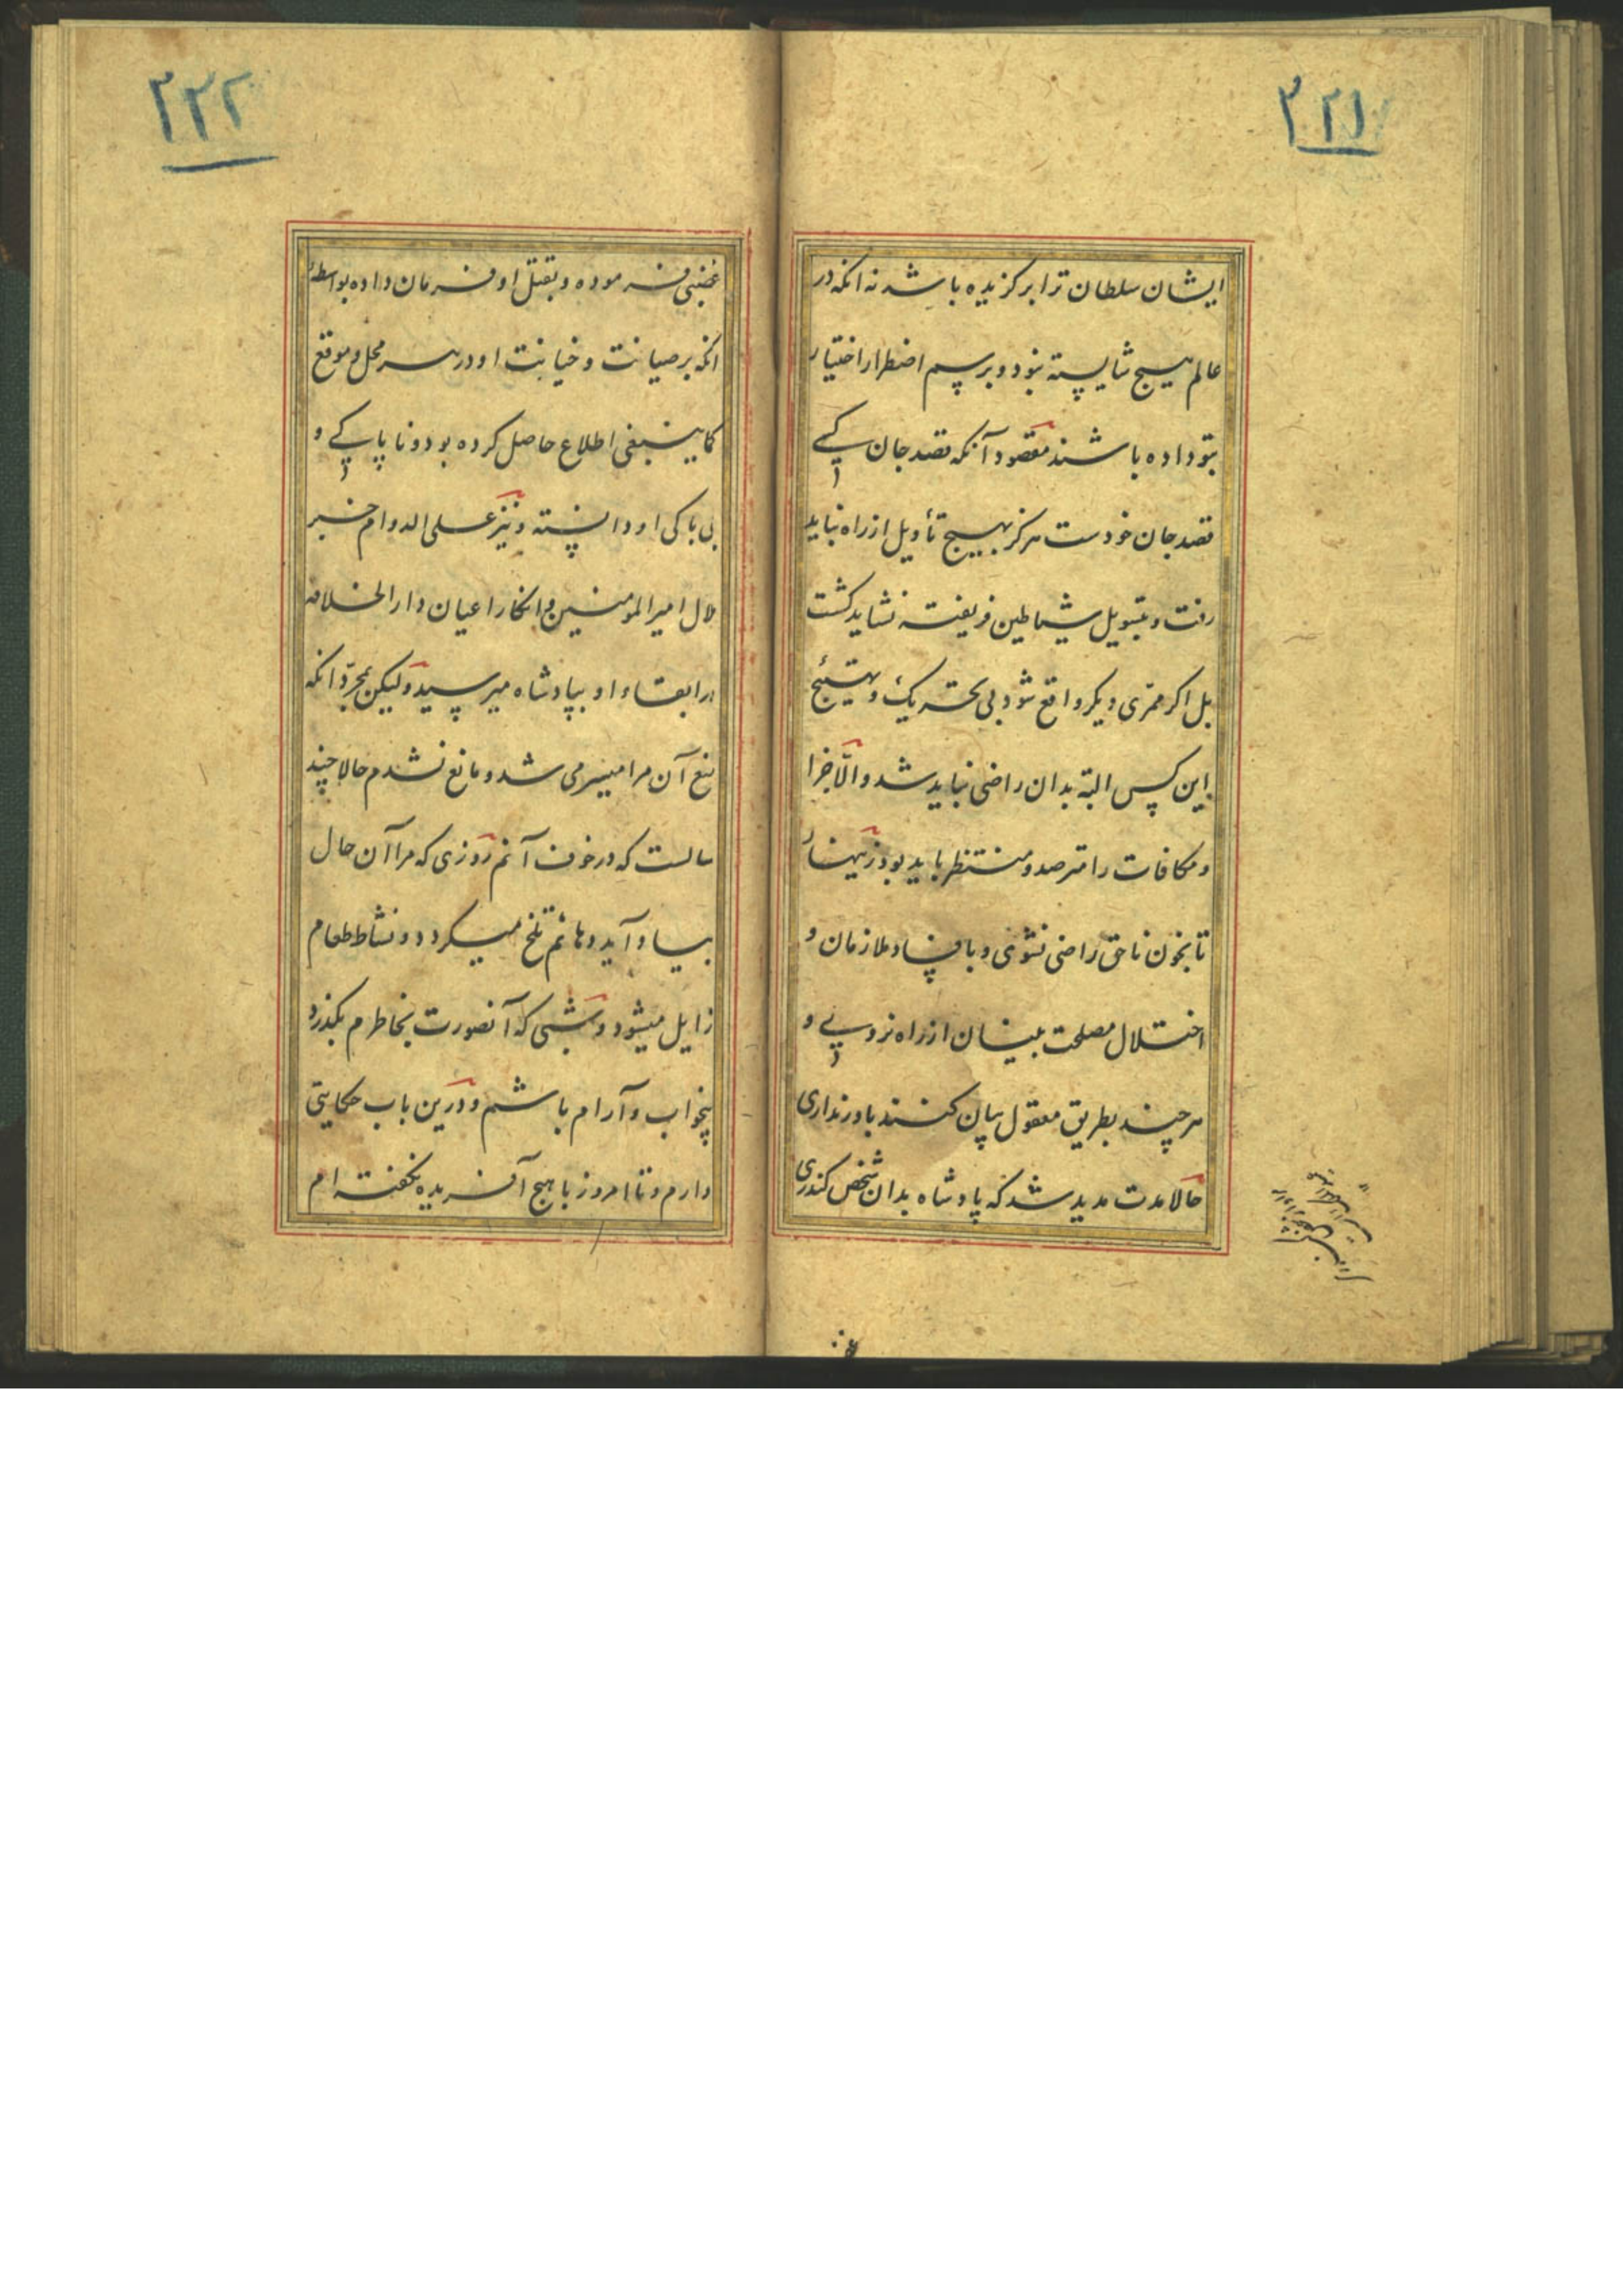 ۳۲۱
ایشان سلطان ترا برکزیده باشد نه انکه در
عالم هیچ شایسته نبود و برسم اضطرار اختیار
بتو داده باشند مقصود آنکه قصد جان کسی
قصد جان خودست هرکز بهیچ تأویل از راه نباید
رفت و بتسویل شیاطین فریفته نشاید کشت
بل اکر ممّری دیکر واقع شود بی تحریک و تهییج
این کس البته بدان راضی نباید شد و الّا جزا
و مکافات را مترصد و منتظر باید بود زینهار
تا بخون ناحق راضی نشوی و بافساد ملازمان و
اختلال مصلحت بینان از راه نروی و
هر چند بطریق معقول بیان کنند باور نداری
حالا مدت مدید شد که پادشاه بدان شخص کندری
۳۲۲
غضبی فرموده و بقتل او فرمان داده بواسطه
انکه بر صیانت و خیانت او در هر محل و موقع
کما ینبغی اطلاع حاصل کرده بود و ناپاکی و
بی باکی او دانسته و نیز علی الدوام خبر
ملال امیرالمومنین و انکار اعیان دار الخلافه
در ابقاء او بپادشاه میرسید و لیکن بمجرّد انکه
منع آن مرا میسر می شد و مانع نشدم حالا چند
سالست که در خوف آنم روزی که مرا آن حال
بیاد آید دهانم تلخ میکردد و نشاط طعام
زایل میشود و شبی که آنصورت بخاطرم بکذرد
بیخواب و آرام باشم و درین باب حکایتی
دارم و تا امروز با هیچ آفریده نکفته ام